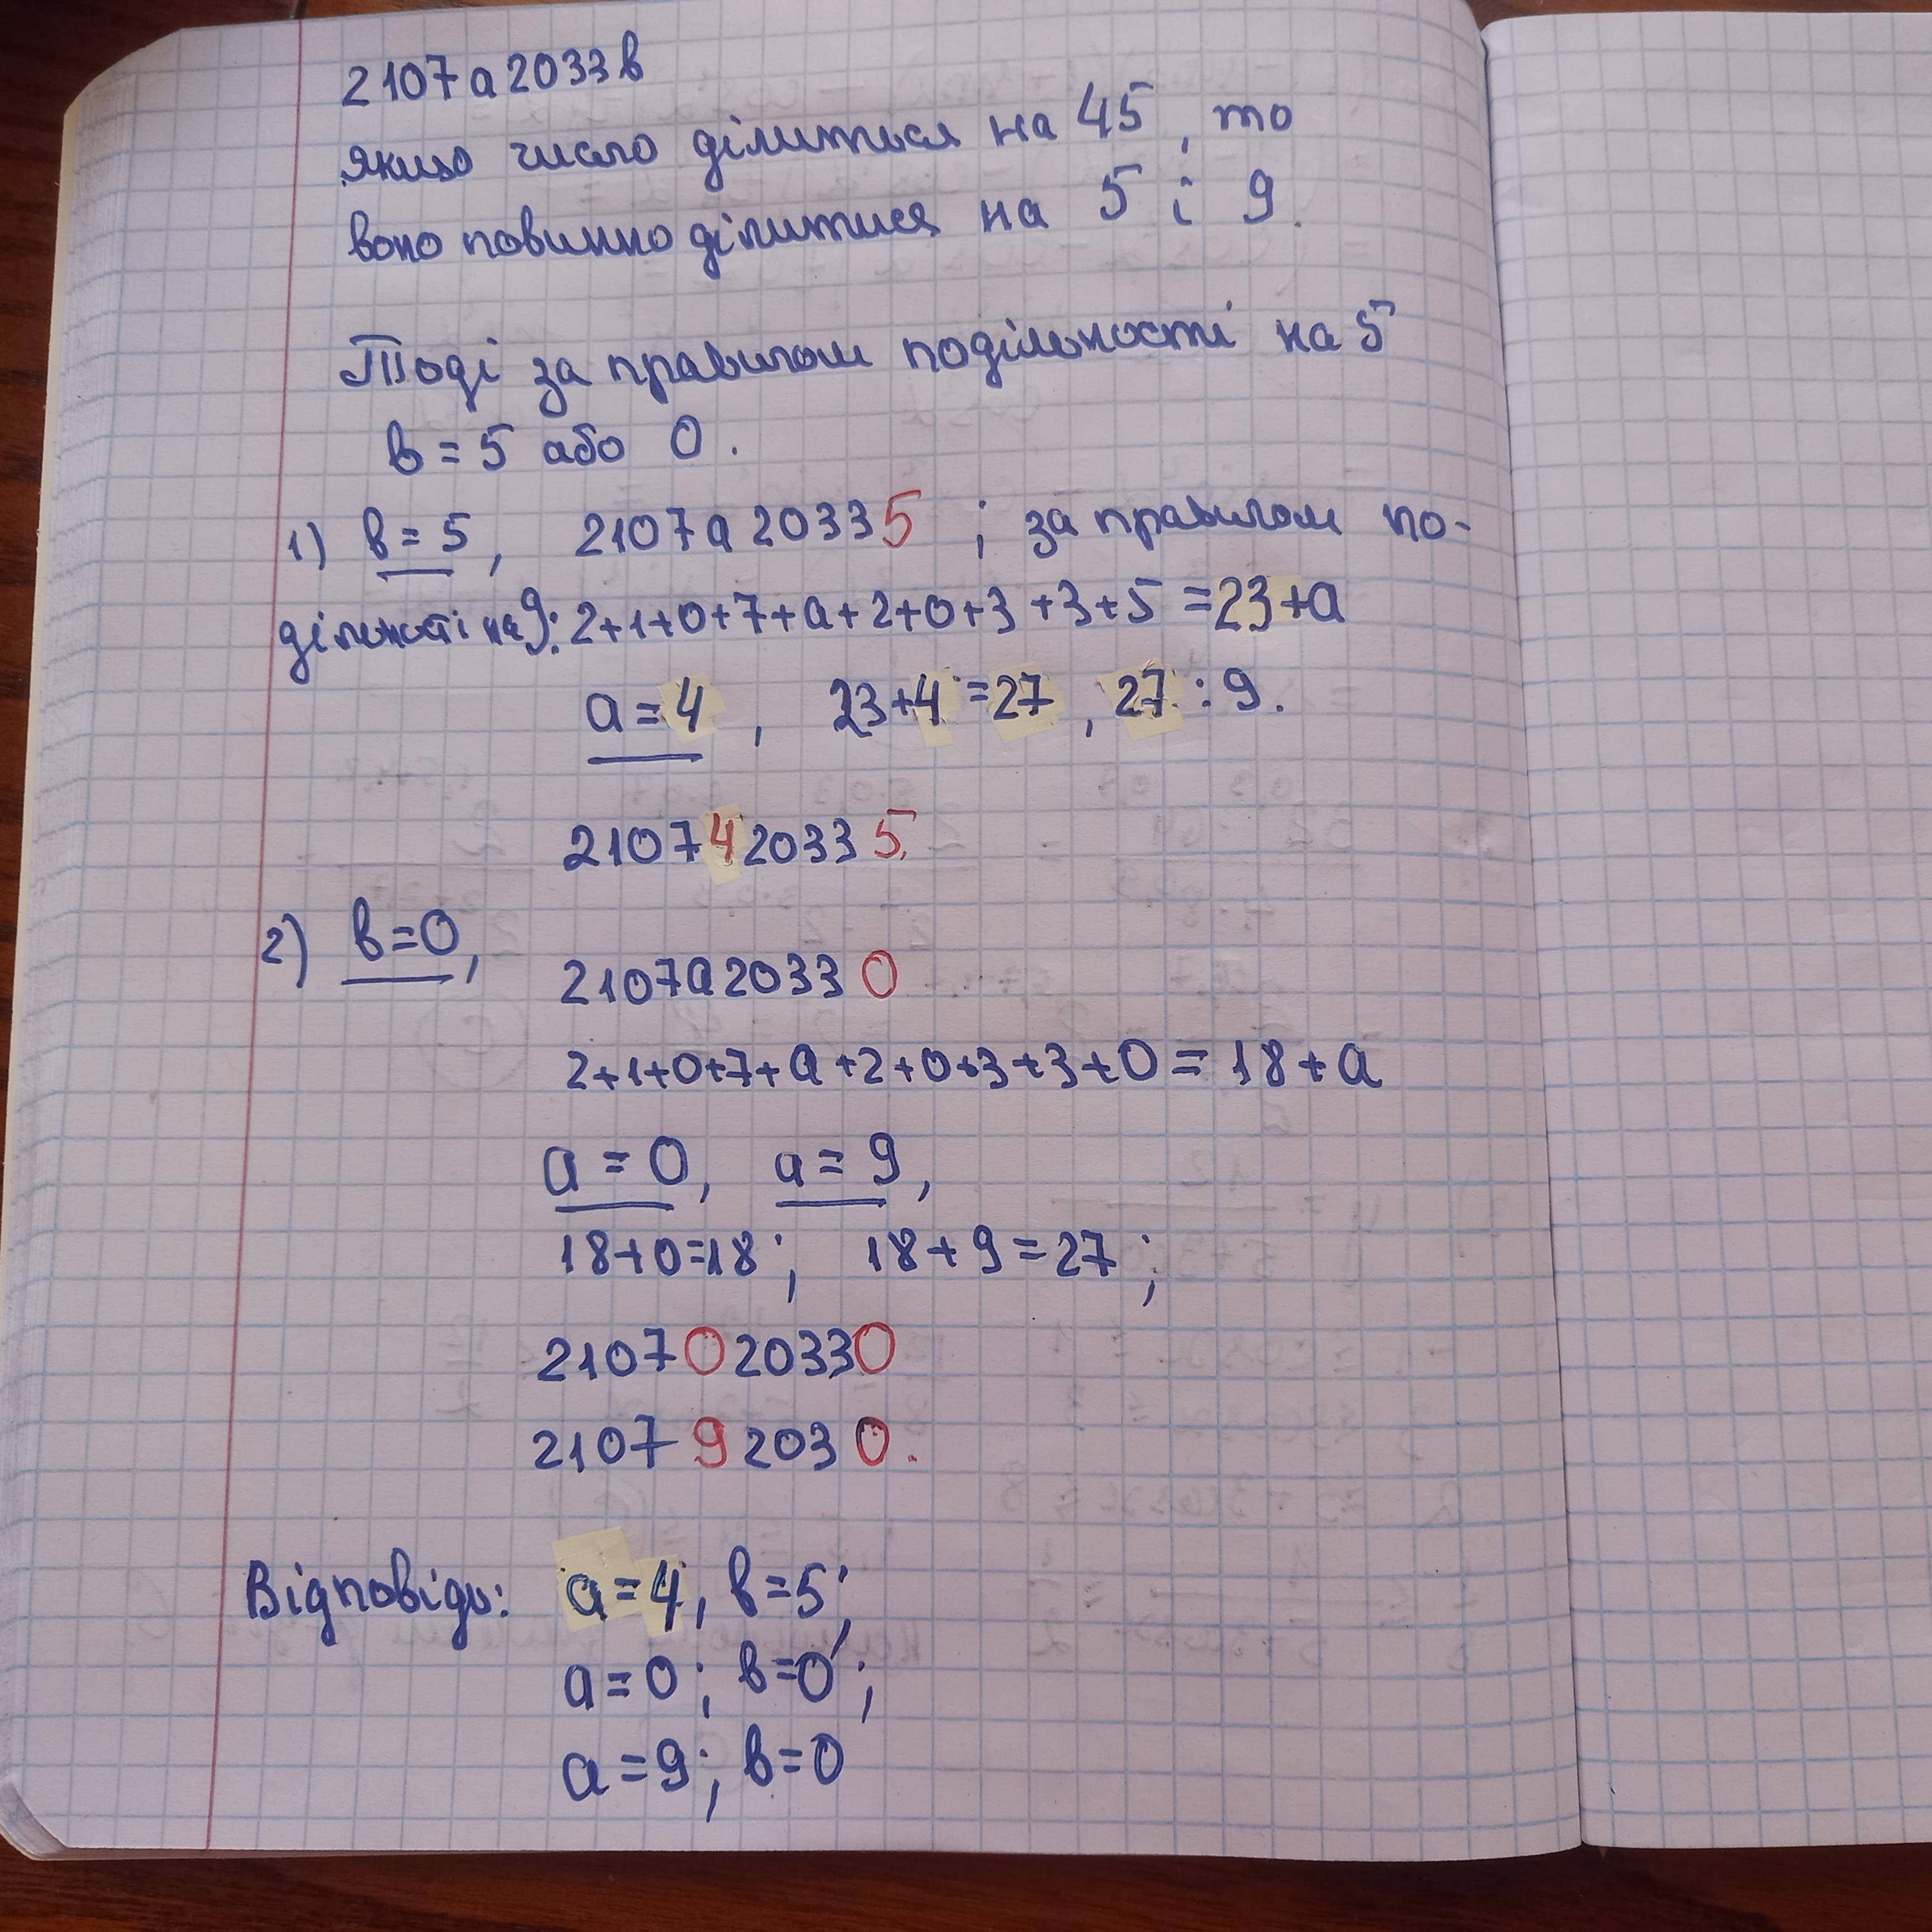 2107a2033в
якщо число ділиться на 45, то
воно повинно ділитися на 5 і 9.
Тоді за правилом подільності на 5
в = 5 або 0.
1) в = 5, 2107a20335 ; за правилом по-
дільності на 9: 2+1+0+7+a+2+0+3+3+5=23+a
a=4, 23+4=27, 27:9.
2107420335.
2) в=0,
2107a20330
2+1+0+7+a+2+0+3+3+0=18+a
a=0, a=9,
18+0=18; 18+9=27;
2107020330
210792030.
Відповідь: a=4, в=5;
a=0; в=0;
a=9; в=0